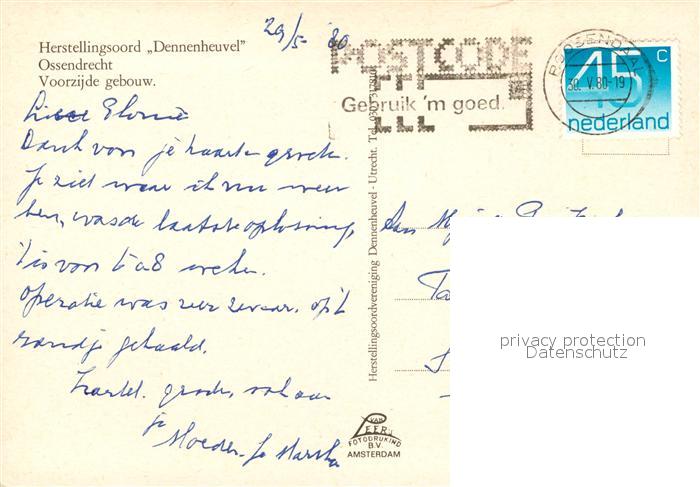 29/5 '80
Herstellingsoord „Dennenheuvel”
Ossendrecht
Voorzijde gebouw.
POSTCODE
Gebruik 'm goed.
ROOSENDAAL
30. V.80-19
45 c
nederland
Dank voor je kaart en groeten.
Je ziet waar ik nu weer
ben, was de laatste oplossing,
't is voor 6 a 8 weken.
Operatie was zeer zwaar. op 't
randje gehaald.
Hartel. groeten, ook aan
je
Moeder. Jo Marsha
Herstellingsoordvereniging Dennenheuvel - Utrecht. Tel.
Aan
VAN LEER
FOTODRUKIND
B.V.
AMSTERDAM
privacy protection
Datenschutz